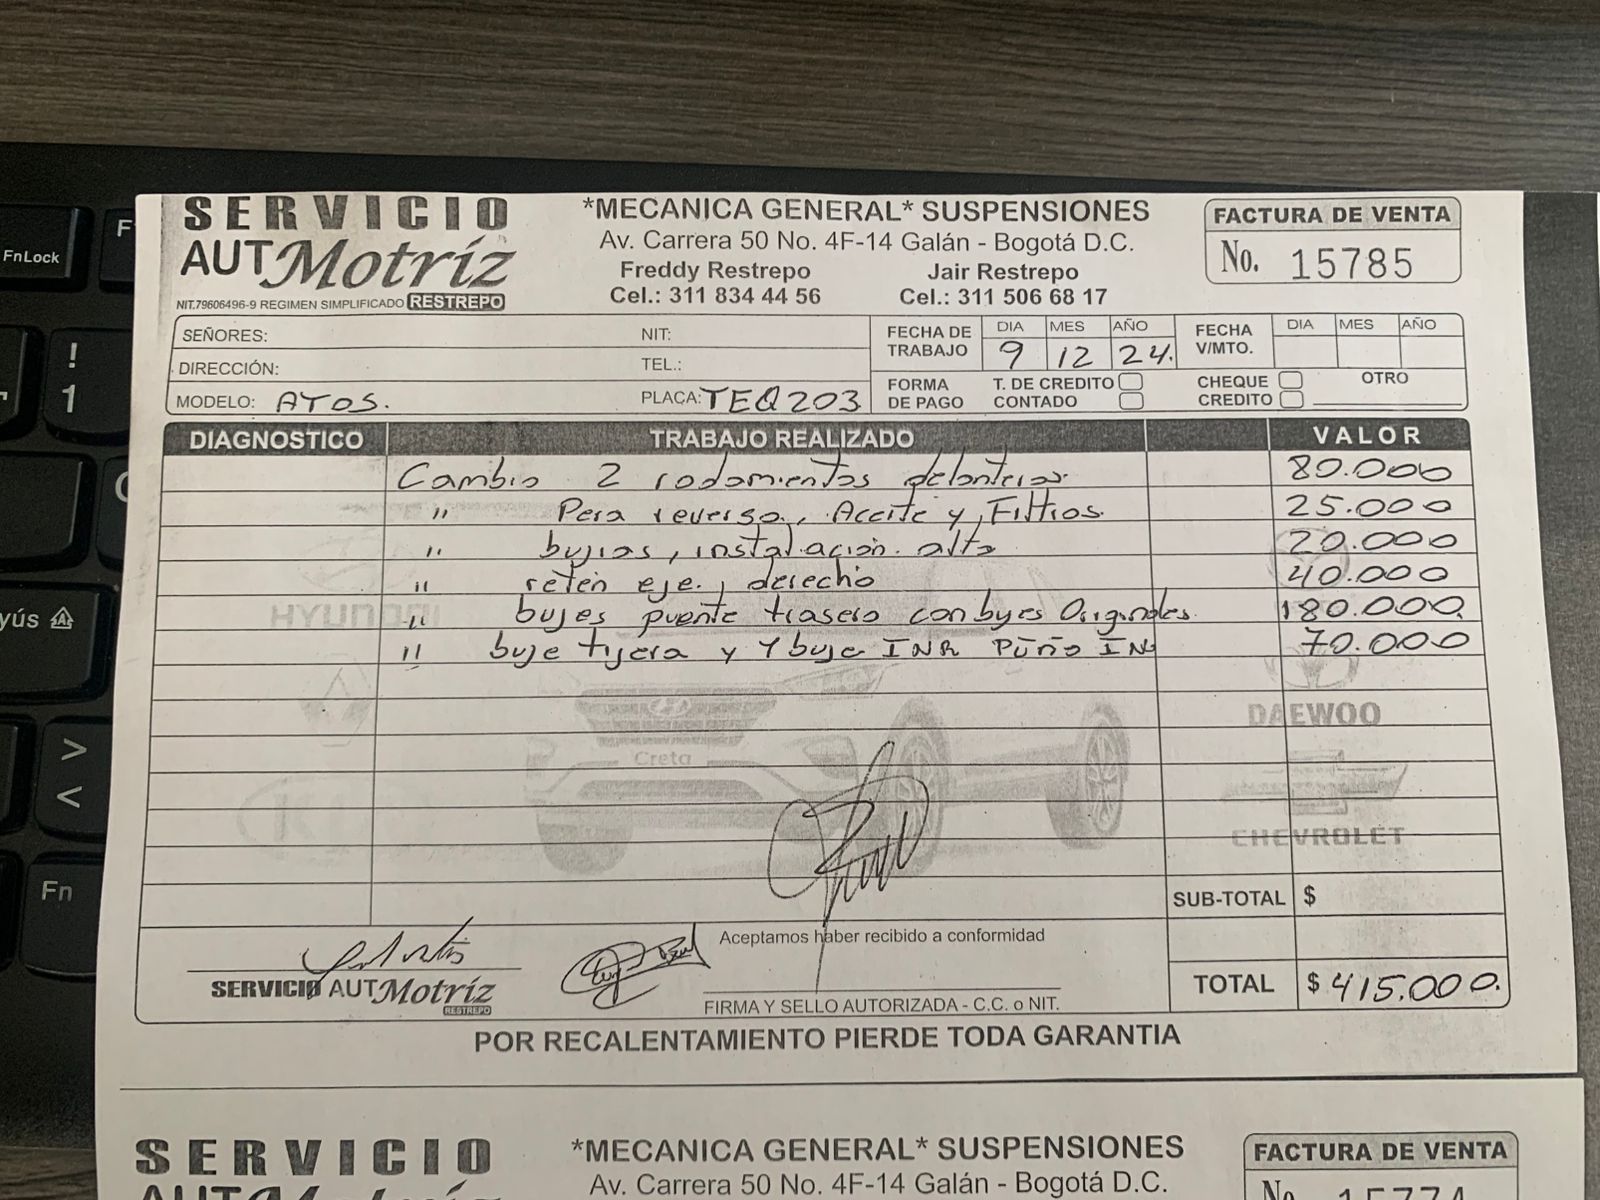 SERVICIO
AUTMotríz
NIT.79606496-9 REGIMEN SIMPLIFICADO RESTREPO
*MECANICA GENERAL* SUSPENSIONES
Av. Carrera 50 No. 4F-14 Galán - Bogotá D.C.
Freddy Restrepo Jair Restrepo
Cel.: 311 834 44 56 Cel.: 311 506 68 17
FACTURA DE VENTA
No. 15785
SEÑORES: NIT:
DIRECCIÓN: TEL.:
MODELO: ATOS. PLACA: TEQ203
FECHA DE TRABAJO DIA MES AÑO
9 12 24.
FECHA V/MTO. DIA MES AÑO
FORMA DE PAGO T. DE CREDITO CHEQUE OTRO
CONTADO CREDITO
DIAGNOSTICO TRABAJO REALIZADO VALOR
Cambio 2 rodamientos delanteros 80.000
" Pera reverso, Aceite y Filtros. 25.000
" bujias, instalación. alta 20.000
" retén eje, derecho 40.000
" bujes puente trasero con byes Originales. 180.000
" buje tijera y 1 buje INR Puño IN 70.000
HYUNDAI
DAEWOO
Creta
KIA
CHEVROLET
SUB-TOTAL $
Aceptamos haber recibido a conformidad
SERVICIO AUTMotríz
RESTREPO
FIRMA Y SELLO AUTORIZADA - C.C. o NIT.
TOTAL $ 415.000.
POR RECALENTAMIENTO PIERDE TODA GARANTIA
SERVICIO
*MECANICA GENERAL* SUSPENSIONES
Av. Carrera 50 No. 4F-14 Galán - Bogotá D.C.
FACTURA DE VENTA
No. 15774
FnLock
F
!
1
>
<
Fn